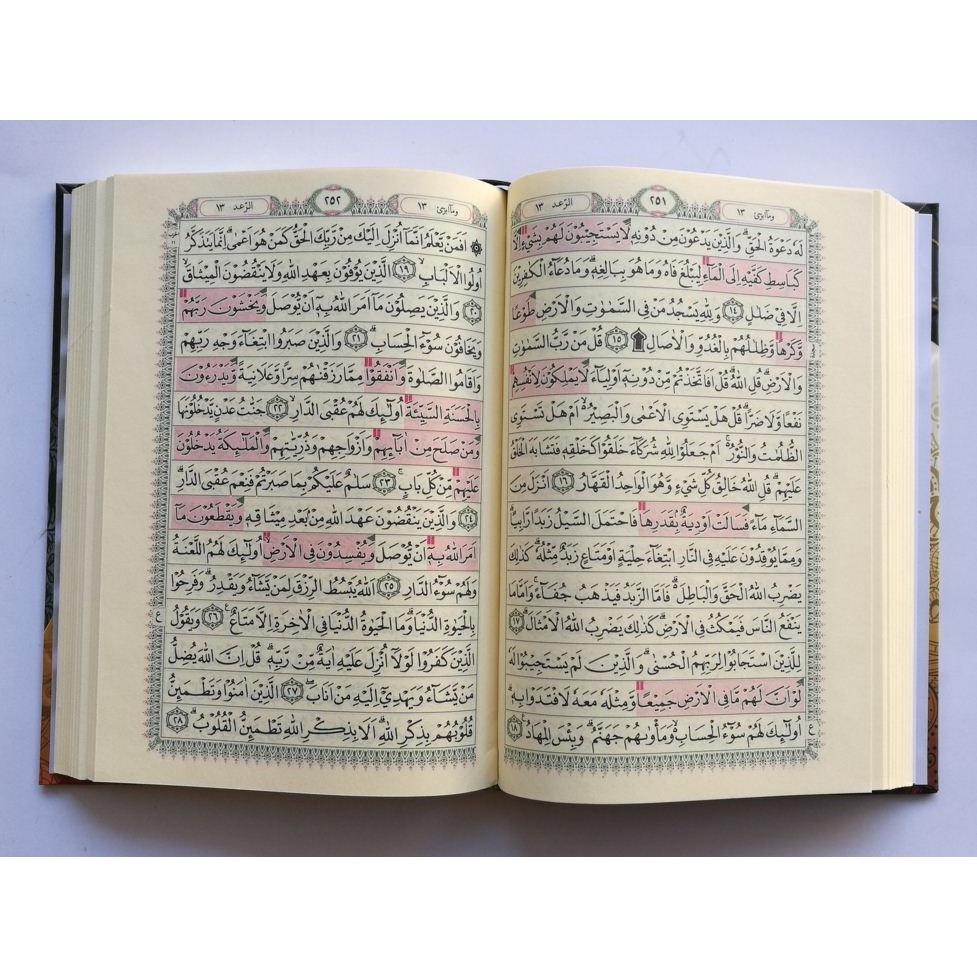 وماۤابرئ ١٣
٢٥١
الرّعد ١٣
لَهٗ دَعْوَةُ الْحَقِّۗ وَالَّذِيْنَ يَدْعُوْنَ مِنْ دُوْنِهٖ لَا يَسْتَجِيْبُوْنَ لَهُمْ بِشَيْءٍ اِلَّا
كَبَاسِطِ كَفَّيْهِ اِلَى الْمَاۤءِ لِيَبْلُغَ فَاهُ وَمَا هُوَ بِبَالِغِهٖۗ وَمَا دُعَاۤءُ الْكٰفِرِيْنَ
اِلَّا فِيْ ضَلٰلٍ ١٤ وَلِلّٰهِ يَسْجُدُ مَنْ فِى السَّمٰوٰتِ وَالْاَرْضِ طَوْعًا
وَّكَرْهًا وَّظِلٰلُهُمْ بِالْغُدُوِّ وَالْاٰصَالِ ۩ ١٥ قُلْ مَنْ رَّبُّ السَّمٰوٰتِ
وَالْاَرْضِۗ قُلِ اللّٰهُۗ قُلْ اَفَاتَّخَذْتُمْ مِّنْ دُوْنِهٖٓ اَوْلِيَاۤءَ لَا يَمْلِكُوْنَ لِاَنْفُسِهِمْ
نَفْعًا وَّلَا ضَرًّاۗ قُلْ هَلْ يَسْتَوِى الْاَعْمٰى وَالْبَصِيْرُ ەۙ اَمْ هَلْ تَسْتَوِى
الظُّلُمٰتُ وَالنُّوْرُ ەۚ اَمْ جَعَلُوْا لِلّٰهِ شُرَكَاۤءَ خَلَقُوْا كَخَلْقِهٖ فَتَشَابَهَ الْخَلْقُ
عَلَيْهِمْۗ قُلِ اللّٰهُ خَالِقُ كُلِّ شَيْءٍ وَّهُوَ الْوَاحِدُ الْقَهَّارُ ١٦ اَنْزَلَ مِنَ
السَّمَاۤءِ مَاۤءً فَسَالَتْ اَوْدِيَةٌۢ بِقَدَرِهَا فَاحْتَمَلَ السَّيْلُ زَبَدًا رَّابِيًاۗ
وَمِمَّا يُوْقِدُوْنَ عَلَيْهِ فِى النَّارِ ابْتِغَاۤءَ حِلْيَةٍ اَوْ مَتَاعٍ زَبَدٌ مِّثْلُهٗۗ كَذٰلِكَ
يَضْرِبُ اللّٰهُ الْحَقَّ وَالْبَاطِلَ ەۗ فَاَمَّا الزَّبَدُ فَيَذْهَبُ جُفَاۤءًۚ وَاَمَّا مَا
يَنْفَعُ النَّاسَ فَيَمْكُثُ فِى الْاَرْضِۗ كَذٰلِكَ يَضْرِبُ اللّٰهُ الْاَمْثَالَۗ ١٧
لِلَّذِيْنَ اسْتَجَابُوْا لِرَبِّهِمُ الْحُسْنٰىۗ وَالَّذِيْنَ لَمْ يَسْتَجِيْبُوْا لَهٗ
لَوْ اَنَّ لَهُمْ مَّا فِى الْاَرْضِ جَمِيْعًا وَّمِثْلَهٗ مَعَهٗ لَافْتَدَوْا بِهٖۗ
اُولٰۤىِٕكَ لَهُمْ سُوْۤءُ الْحِسَابِ ەۙ وَمَأْوٰىهُمْ جَهَنَّمُۗ وَبِئْسَ الْمِهَادُ ١٨
وماۤابرئ ١٣
٢٥٢
الرّعد ١٣
۞ اَفَمَنْ يَّعْلَمُ اَنَّمَآ اُنْزِلَ اِلَيْكَ مِنْ رَّبِّكَ الْحَقُّ كَمَنْ هُوَ اَعْمٰىۗ اِنَّمَا يَتَذَكَّرُ
اُولُوا الْاَلْبَابِۙ ١٩ الَّذِيْنَ يُوْفُوْنَ بِعَهْدِ اللّٰهِ وَلَا يَنْقُضُوْنَ الْمِيْثَاقَۙ
٢٠ وَالَّذِيْنَ يَصِلُوْنَ مَآ اَمَرَ اللّٰهُ بِهٖٓ اَنْ يُّوْصَلَ وَيَخْشَوْنَ رَبَّهُمْ
وَيَخَافُوْنَ سُوْۤءَ الْحِسَابِۗ ٢١ وَالَّذِيْنَ صَبَرُوا ابْتِغَاۤءَ وَجْهِ رَبِّهِمْ
وَاَقَامُوا الصَّلٰوةَ وَاَنْفَقُوْا مِمَّا رَزَقْنٰهُمْ سِرًّا وَّعَلَانِيَةً وَّيَدْرَءُوْنَ
بِالْحَسَنَةِ السَّيِّئَةَ اُولٰۤىِٕكَ لَهُمْ عُقْبَى الدَّارِۙ ٢٢ جَنّٰتُ عَدْنٍ يَّدْخُلُوْنَهَا
وَمَنْ صَلَحَ مِنْ اٰبَاۤىِٕهِمْ وَاَزْوَاجِهِمْ وَذُرِّيّٰتِهِمْ وَالْمَلٰۤىِٕكَةُ يَدْخُلُوْنَ
عَلَيْهِمْ مِّنْ كُلِّ بَابٍۚ ٢٣ سَلٰمٌ عَلَيْكُمْ بِمَا صَبَرْتُمْ فَنِعْمَ عُقْبَى الدَّارِۗ
٢٤ وَالَّذِيْنَ يَنْقُضُوْنَ عَهْدَ اللّٰهِ مِنْۢ بَعْدِ مِيْثَاقِهٖ وَيَقْطَعُوْنَ مَآ
اَمَرَ اللّٰهُ بِهٖٓ اَنْ يُّوْصَلَ وَيُفْسِدُوْنَ فِى الْاَرْضِۙ اُولٰۤىِٕكَ لَهُمُ اللَّعْنَةُ
وَلَهُمْ سُوْۤءُ الدَّارِ ٢٥ اَللّٰهُ يَبْسُطُ الرِّزْقَ لِمَنْ يَّشَاۤءُ وَيَقْدِرُۗ وَفَرِحُوْا
بِالْحَيٰوةِ الدُّنْيَاۗ وَمَا الْحَيٰوةُ الدُّنْيَا فِى الْاٰخِرَةِ اِلَّا مَتَاعٌ ࣖ ٢٦ وَيَقُوْلُ
الَّذِيْنَ كَفَرُوْا لَوْلَآ اُنْزِلَ عَلَيْهِ اٰيَةٌ مِّنْ رَّبِّهٖۗ قُلْ اِنَّ اللّٰهَ يُضِلُّ
مَنْ يَّشَاۤءُ وَيَهْدِيْٓ اِلَيْهِ مَنْ اَنَابَۖ ٢٧ الَّذِيْنَ اٰمَنُوْا وَتَطْمَىِٕنُّ
قُلُوْبُهُمْ بِذِكْرِ اللّٰهِۗ اَلَا بِذِكْرِ اللّٰهِ تَطْمَىِٕنُّ الْقُلُوْبُۗ ٢٨